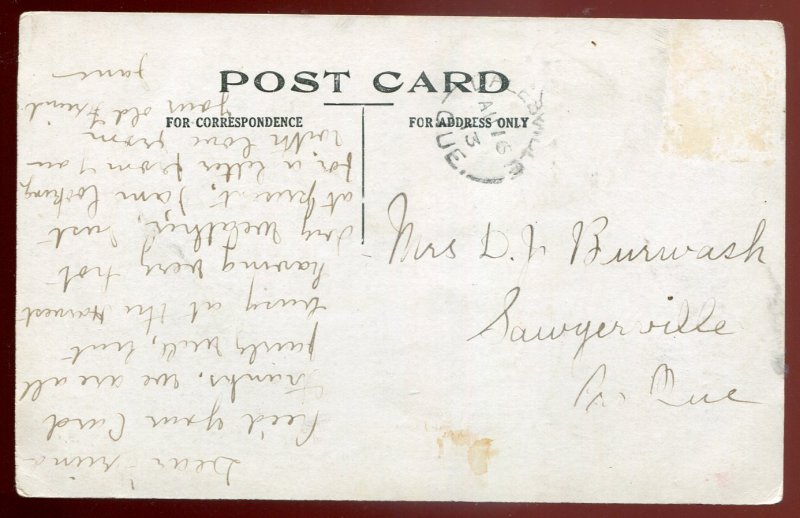 POST CARD
FOR CORRESPONDENCE
FOR ADDRESS ONLY
AU 16
13
QUE.
Mrs D. J. Burwash
Sawyerville
P. Que
Dear Friend
Rec'd your Card
thanks. we are all
fairly well, but
busy at the Harvest
having very hot
dry weather, just
at present, I am looking
for, a letter from you
with love from
your old friend
Jane